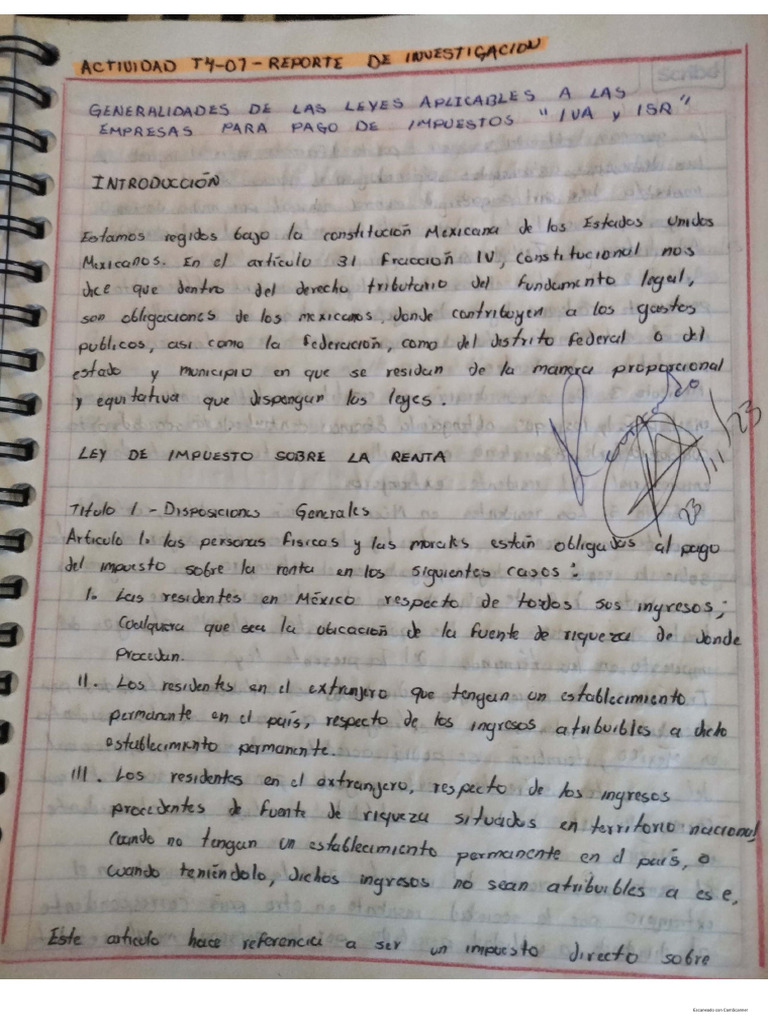 ACTIVIDAD T4-01 - REPORTE DE INVESTIGACION
Scribe
GENERALIDADES DE LAS LEYES APLICABLES A LAS
EMPRESAS PARA PAGO DE IMPUESTOS "IVA y ISR"
INTRODUCCIÓN
Estamos regidos bajo la constitución Mexicana de los Estados Unidos
Mexicanos. En el artículo 31 Fracción IV, constitucional nos
dice que dentro del derecho tributario del fundamento legal,
son obligaciones de los mexicanos, donde contribuyen a los gastos
publicos, asi como la federación, como del distrito Federal o del
estado y municipio en que se residan de la manera proporcional
y equitativa que dispongan las leyes.
23/11/23
LEY DE IMPUESTO SOBRE LA RENTA
Titulo 1 - Disposiciones Generales
Articulo 1. las personas fisicas y las morales están obligadas al pago
del impuesto sobre la renta en los siguientes casos:
I. Las residentes en México respecto de todos sus ingresos;
cualquera que sea la obicación de la fuente de riqueza de donde
procedan.
II. Los residentes en el extranjero que tengan un establecimiento
permanente en el país, respecto de los ingresos atribuibles a dicho
establecimiento permanente.
III. Los residentes en el extranjero, respecto de los ingresos
procedentes de fuente de riqueza situados en territorio nacional,
cuando no tengan un establecimiento permanente en el país, o
cuando teniéndolo, dichos ingresos no sean atribuibles a es e,
Este articulo hace referencia a ser un impuesto directo sobre
Escaneado con CamScanner